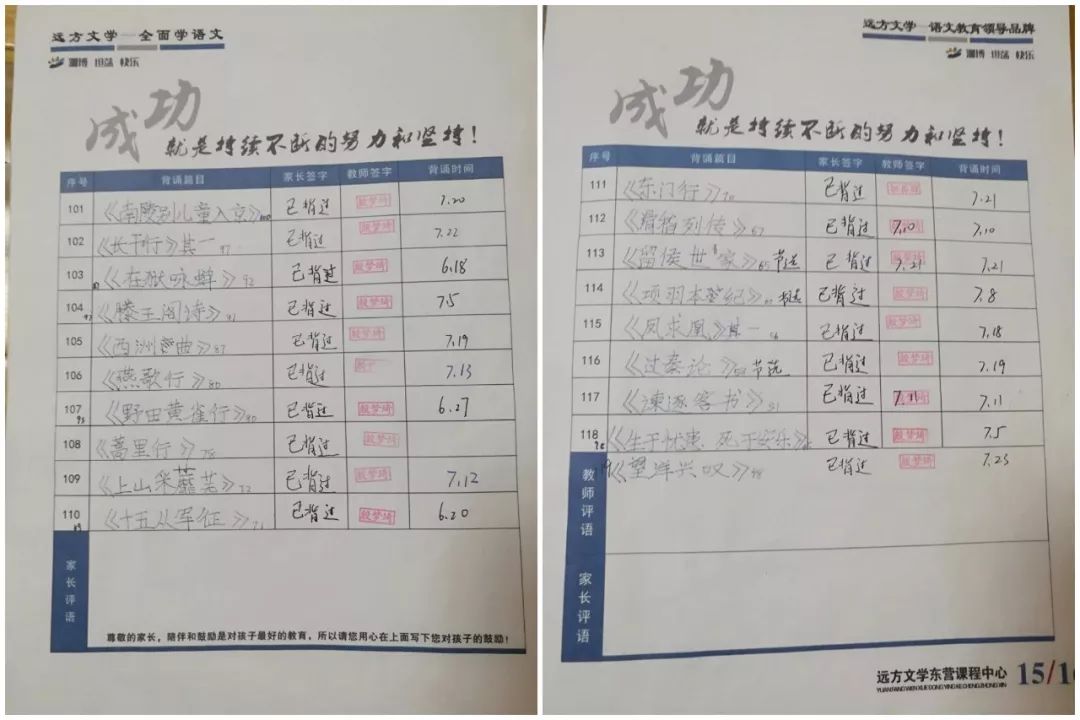 远方文学 全面学语文
渊博 坦荡 快乐
成功
就是持续不断的努力和坚持！
序号 背诵篇目 家长签字 教师签字 背诵时间
101 《南陵别儿童入京》 已背过 殷梦琦 7.20
102 《长干行》其一 97 已背过 殷梦琦 7.22
103 《在狱咏蝉》92 已背过 殷梦琦 6.18
104 《滕王阁诗》91 已背过 殷梦琦 7.5
105 《西洲曲》87 已背过 殷梦琦 7.19
106 《燕歌行》80 已背过 7.13
107 《野田黄雀行》80 已背过 殷梦琦 6.27
108 《蒿里行》78 已背过 殷梦琦
109 《上山采蘼芜》72 已背过 殷梦琦 7.12
110 《十五从军征》71 已背过 殷梦琦 6.20
家长评语
尊敬的家长，陪伴和鼓励是对孩子最好的教育，所以请您用心在上面写下您对孩子的鼓励！
远方文学 语文教育领导品牌
渊博 坦荡 快乐
成功
就是持续不断的努力和坚持！
序号 背诵篇目 家长签字 教师签字 背诵时间
111 《东门行》70 已背过 7.21
112 《滑稽列传》67 已背过 7.10 7.10
113 《留侯世家》65 节选 已背过 7.21 7.21
114 《项羽本纪》 已背过 殷梦琦 7.8
115 《凤求凰》其一 56 已背过 殷梦琦 7.18
116 《过秦论》 节选 已背过 殷梦琦 7.19
117 《谏逐客书》51 已背过 7.11 7.11
118 《生于忧患，死于安乐》 已背过 殷梦琦 7.5
《望洋兴叹》48 已背过 殷梦琦 7.23
教师评语
家长评语
远方文学东营课程中心 15/1
YUANFANGWENXUEDONGYINGKECHENGZHONGXIN